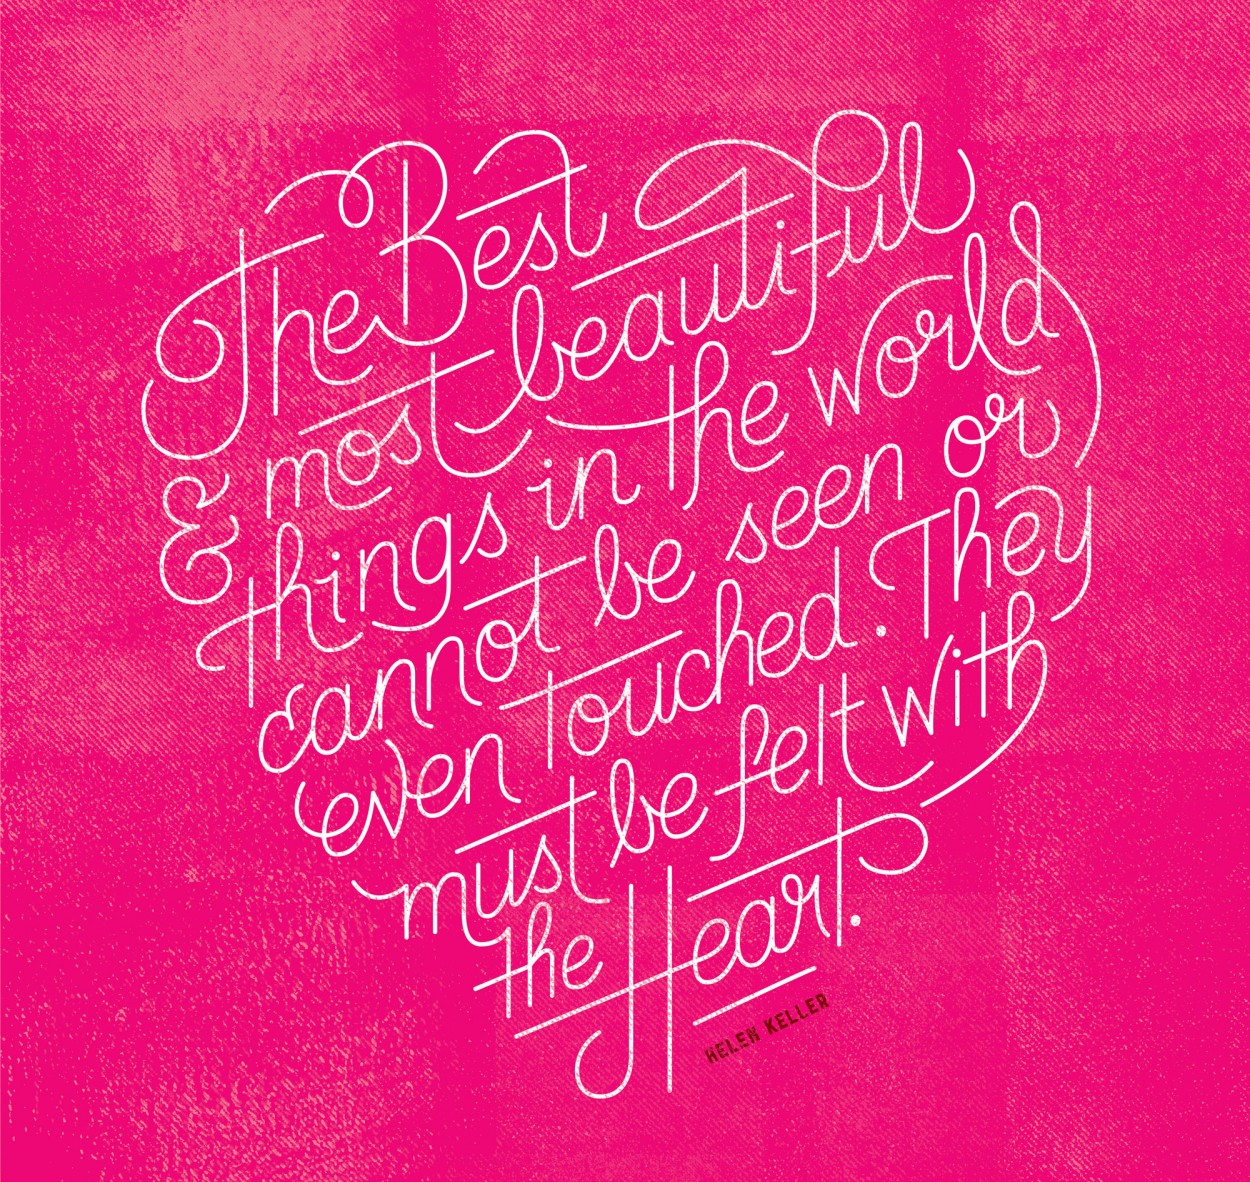 The Best
& most beautiful
things in the world
cannot be seen or
even touched. They
must be felt with
the Heart.
HELEN KELLER